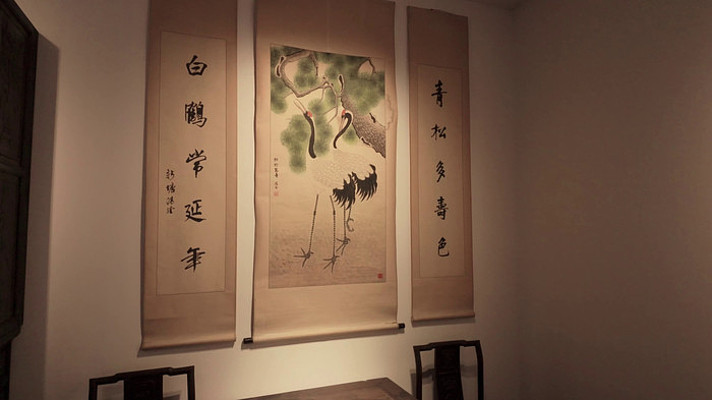 青松多壽色
白鶴常延年